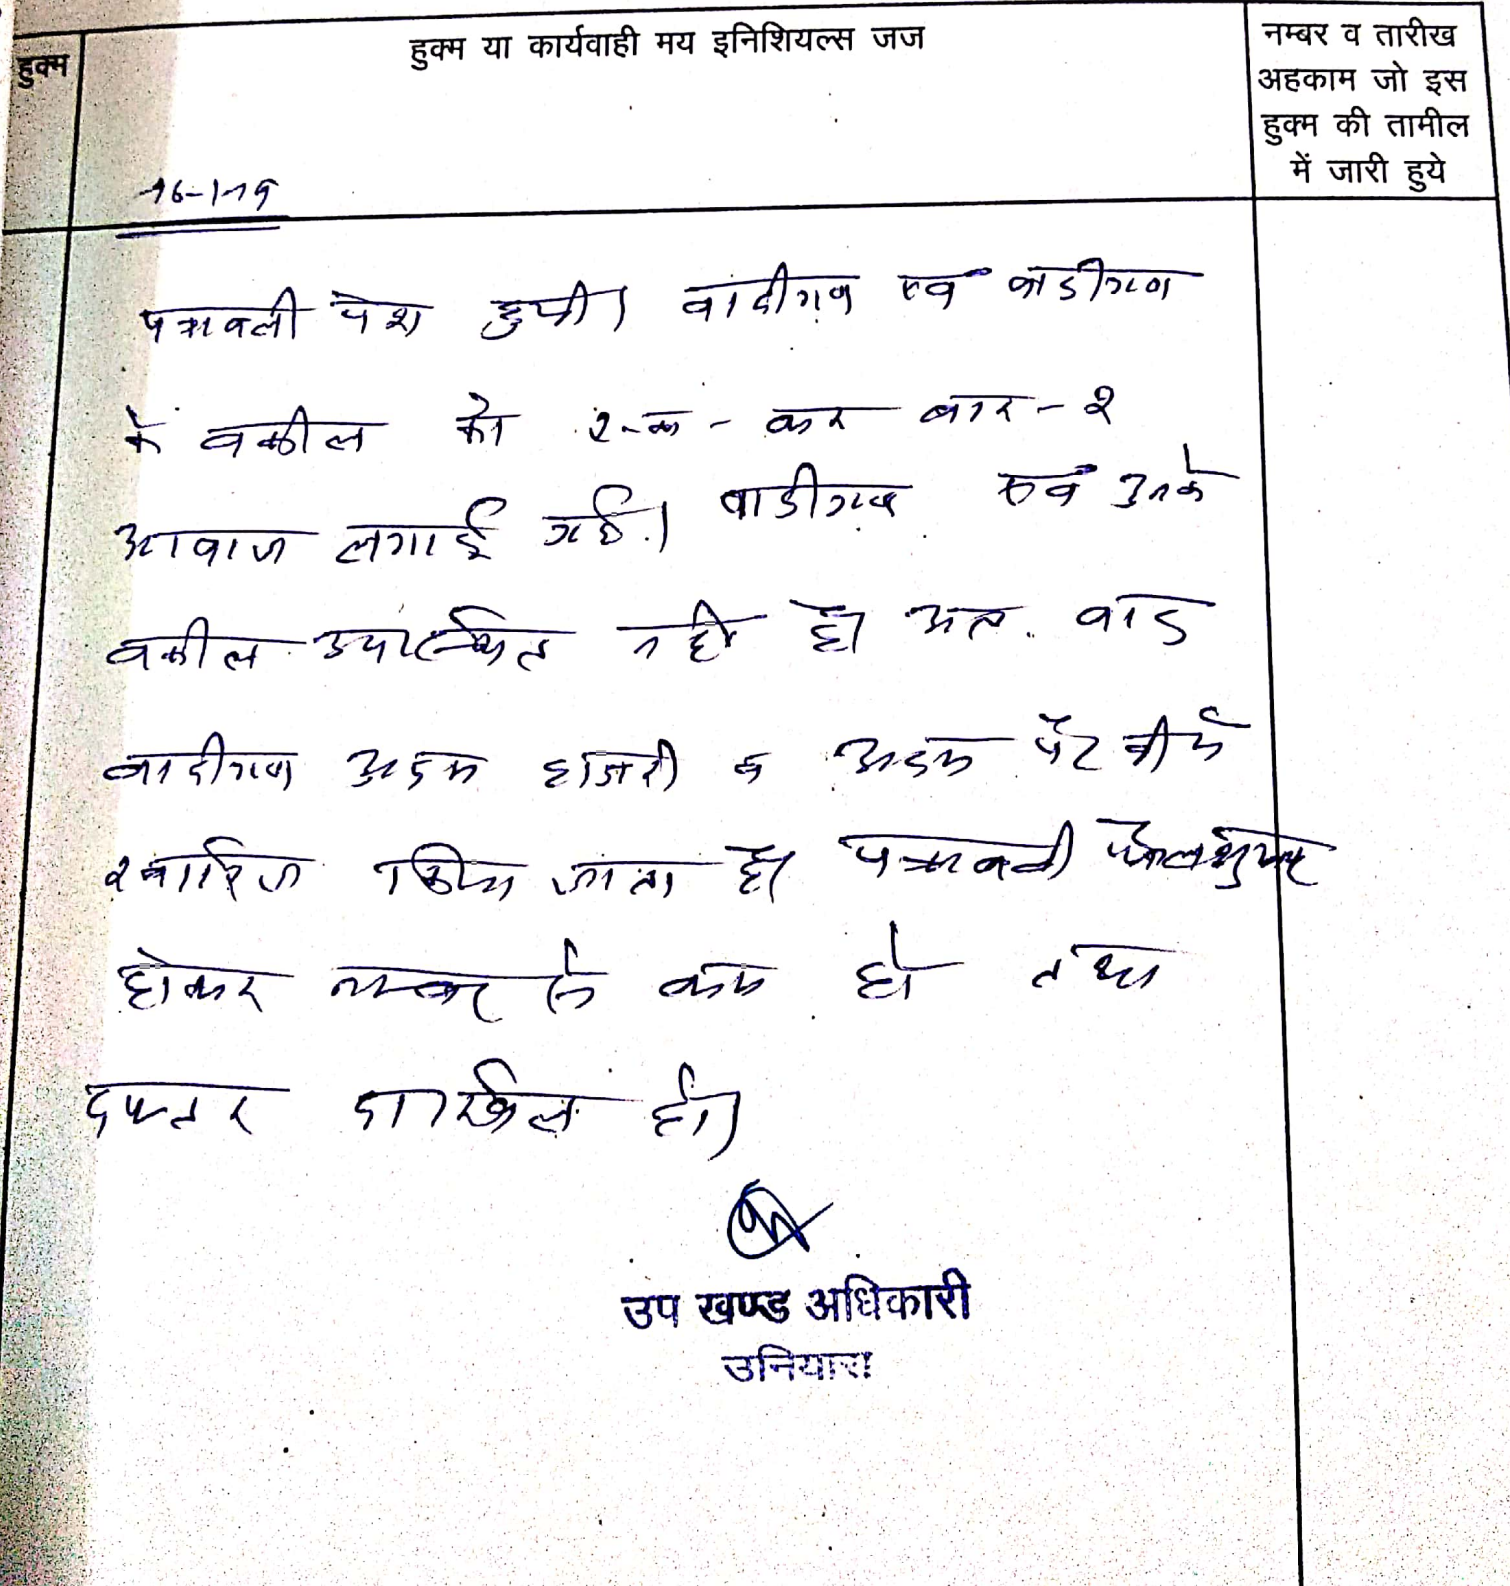 हुक्म
हुक्म या कार्यवाही मय इनिशियल्स जज
नम्बर व तारीख
अहकाम जो इस
हुक्म की तामील
में जारी हुये
16-1-19
पत्रावली पेश हुयी। वादीगण एवं वादीगण
के वकील को रू-क- कर बार-२
आवाज लगाई गई। वादीगण एवं उनके
वकील उपस्थित नही है। अतः वाद
वादीगण अदम हाजरी व अदम पैरवी मे
खारिज किया जाता है। पत्रावली फैसलशुमार
होकर नम्बर से कम हो तथा
दफ्तर दाखिल हो।
उप खण्ड अधिकारी
उनियारा